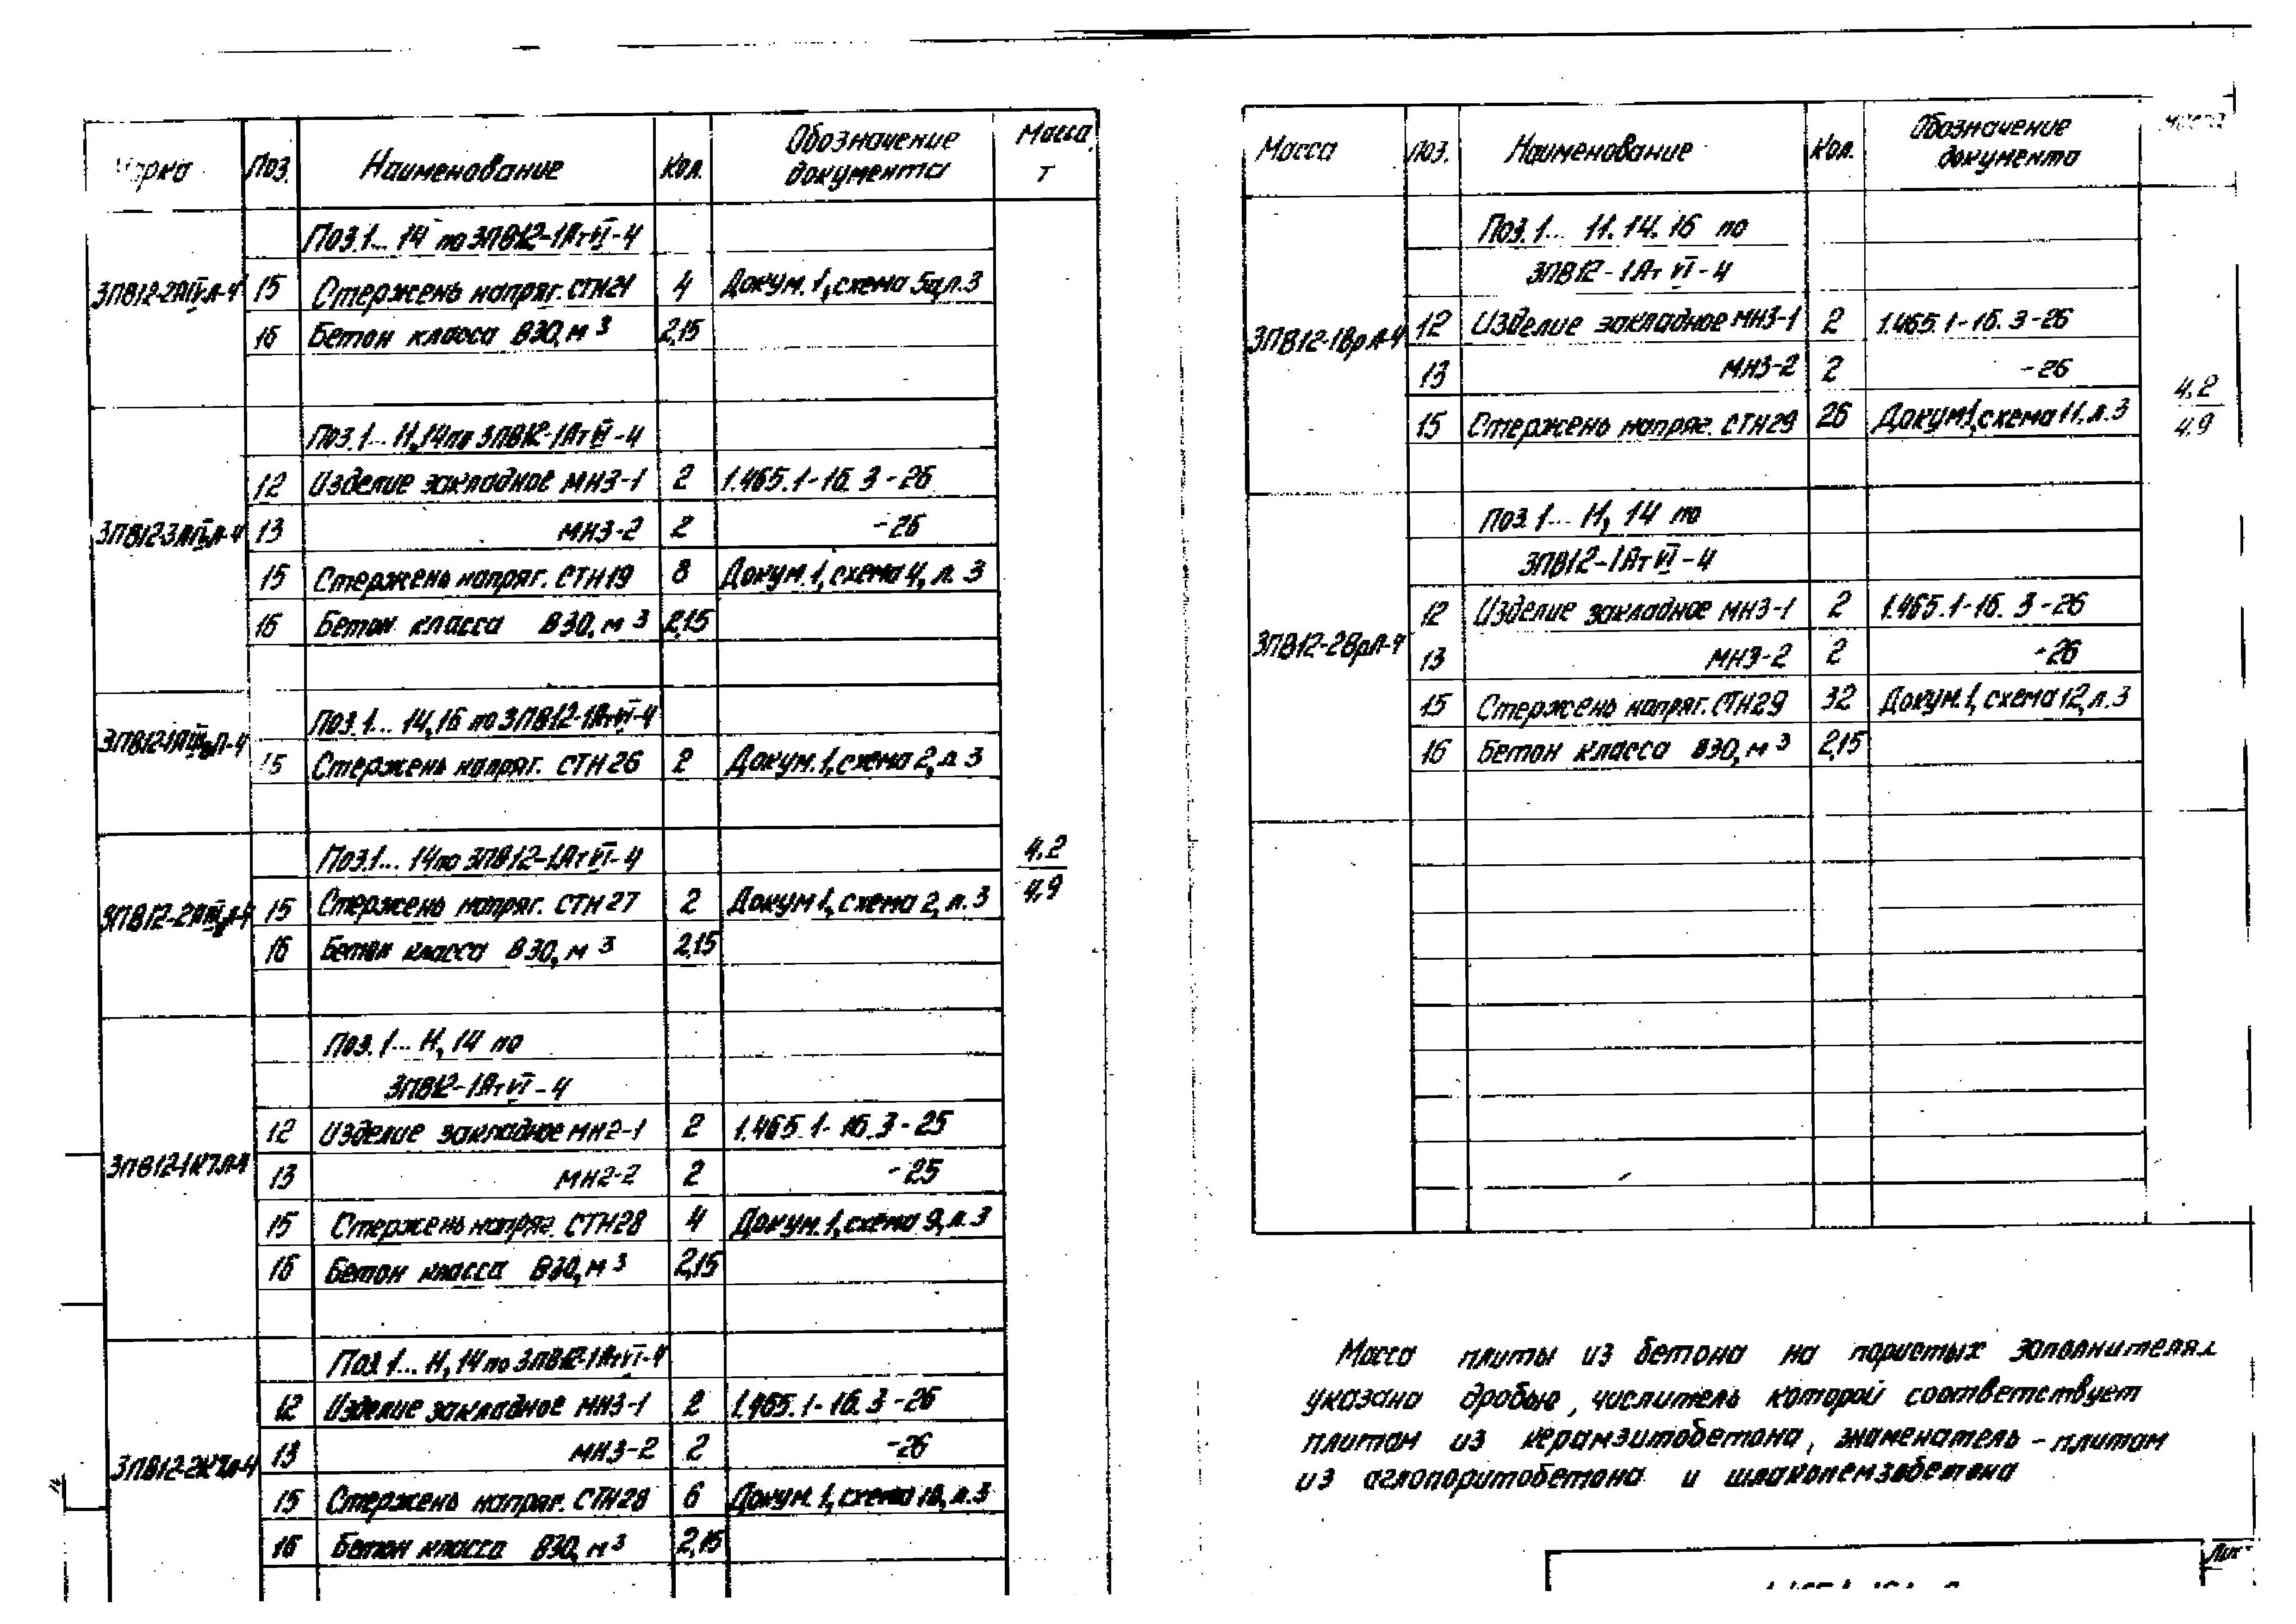 Марка Поз. Наименование Кол. Обозначение документа Масса, т
Поз.1... 14 по 3ПВ12-1АтVI-4
3ПВ12-2АIVл-4 15 Стержень напряг. СТН21 4 Докум.1, схема 5а, л.3
16 Бетон класса В30, м³ 2,15
Поз.1... 11,14 по 3ПВ12-1АтVI-4
12 Изделие закладное МН3-1 2 1.465.1-16.3-26
13 МН3-2 2 -26
15 Стержень напряг. СТН19 8 Докум.1, схема 4, л. 3
16 Бетон класса В30, м³ 2,15
Поз.1... 14,16 по 3ПВ12-1АтVI-4
15 Стержень напряг. СТН26 2 Докум.1, схема 2, л 3
Поз.1... 14 по 3ПВ12-1АтVI-4
15 Стержень напряг. СТН27 2 Докум 1, схема 2, л.3
16 Бетон класса В30, м³ 2,15
4,2
4,9
Поз.1... 11, 14 по
3ПВ12-1АтVI-4
12 Изделие закладное МН2-1 2 1.465.1-16.3-25
3ПВ12-1К7л-4 13 МН2-2 2 -25
15 Стержень напряг. СТН28 4 Докум.1, схема 9, л.3
16 Бетон класса В30, м³ 2,15
Поз.1... 11,14 по 3ПВ12-1АтVI-4
12 Изделие закладное МН3-1 2 1.465.1-16.3-26
3ПВ12-2К7л-4 13 МН3-2 2 -26
15 Стержень напряг. СТН28 6 Докум.1, схема 10, л.3
16 Бетон класса В30, м³ 2,15
Масса Поз. Наименование Кол. Обозначение документа Масса
Поз.1... 11.14.16 по
3ПВ12-1АтVI-4
3ПВ12-1Врл-4 12 Изделие закладное МН3-1 2 1.465.1-16.3-26
13 МН3-2 2 -26
15 Стержень напряг. СТН29 26 Докум1, схема 11, л.3
4,2
4,9
Поз.1... 11, 14 по
3ПВ12-1АтVI-4
12 Изделие закладное МН3-1 2 1.465.1-16.3-26
3ПВ12-2Врл-4 13 МН3-2 2 -26
15 Стержень напряг. СТН29 32 Докум.1, схема 12, л.3
16 Бетон класса В30, м³ 2,15
Масса плиты из бетона на пористых заполнителях
указана дробью, числитель которой соответствует
плитам из керамзитобетона, знаменатель - плитам
из аглопоритобетона и шлакопемзобетона
Лист